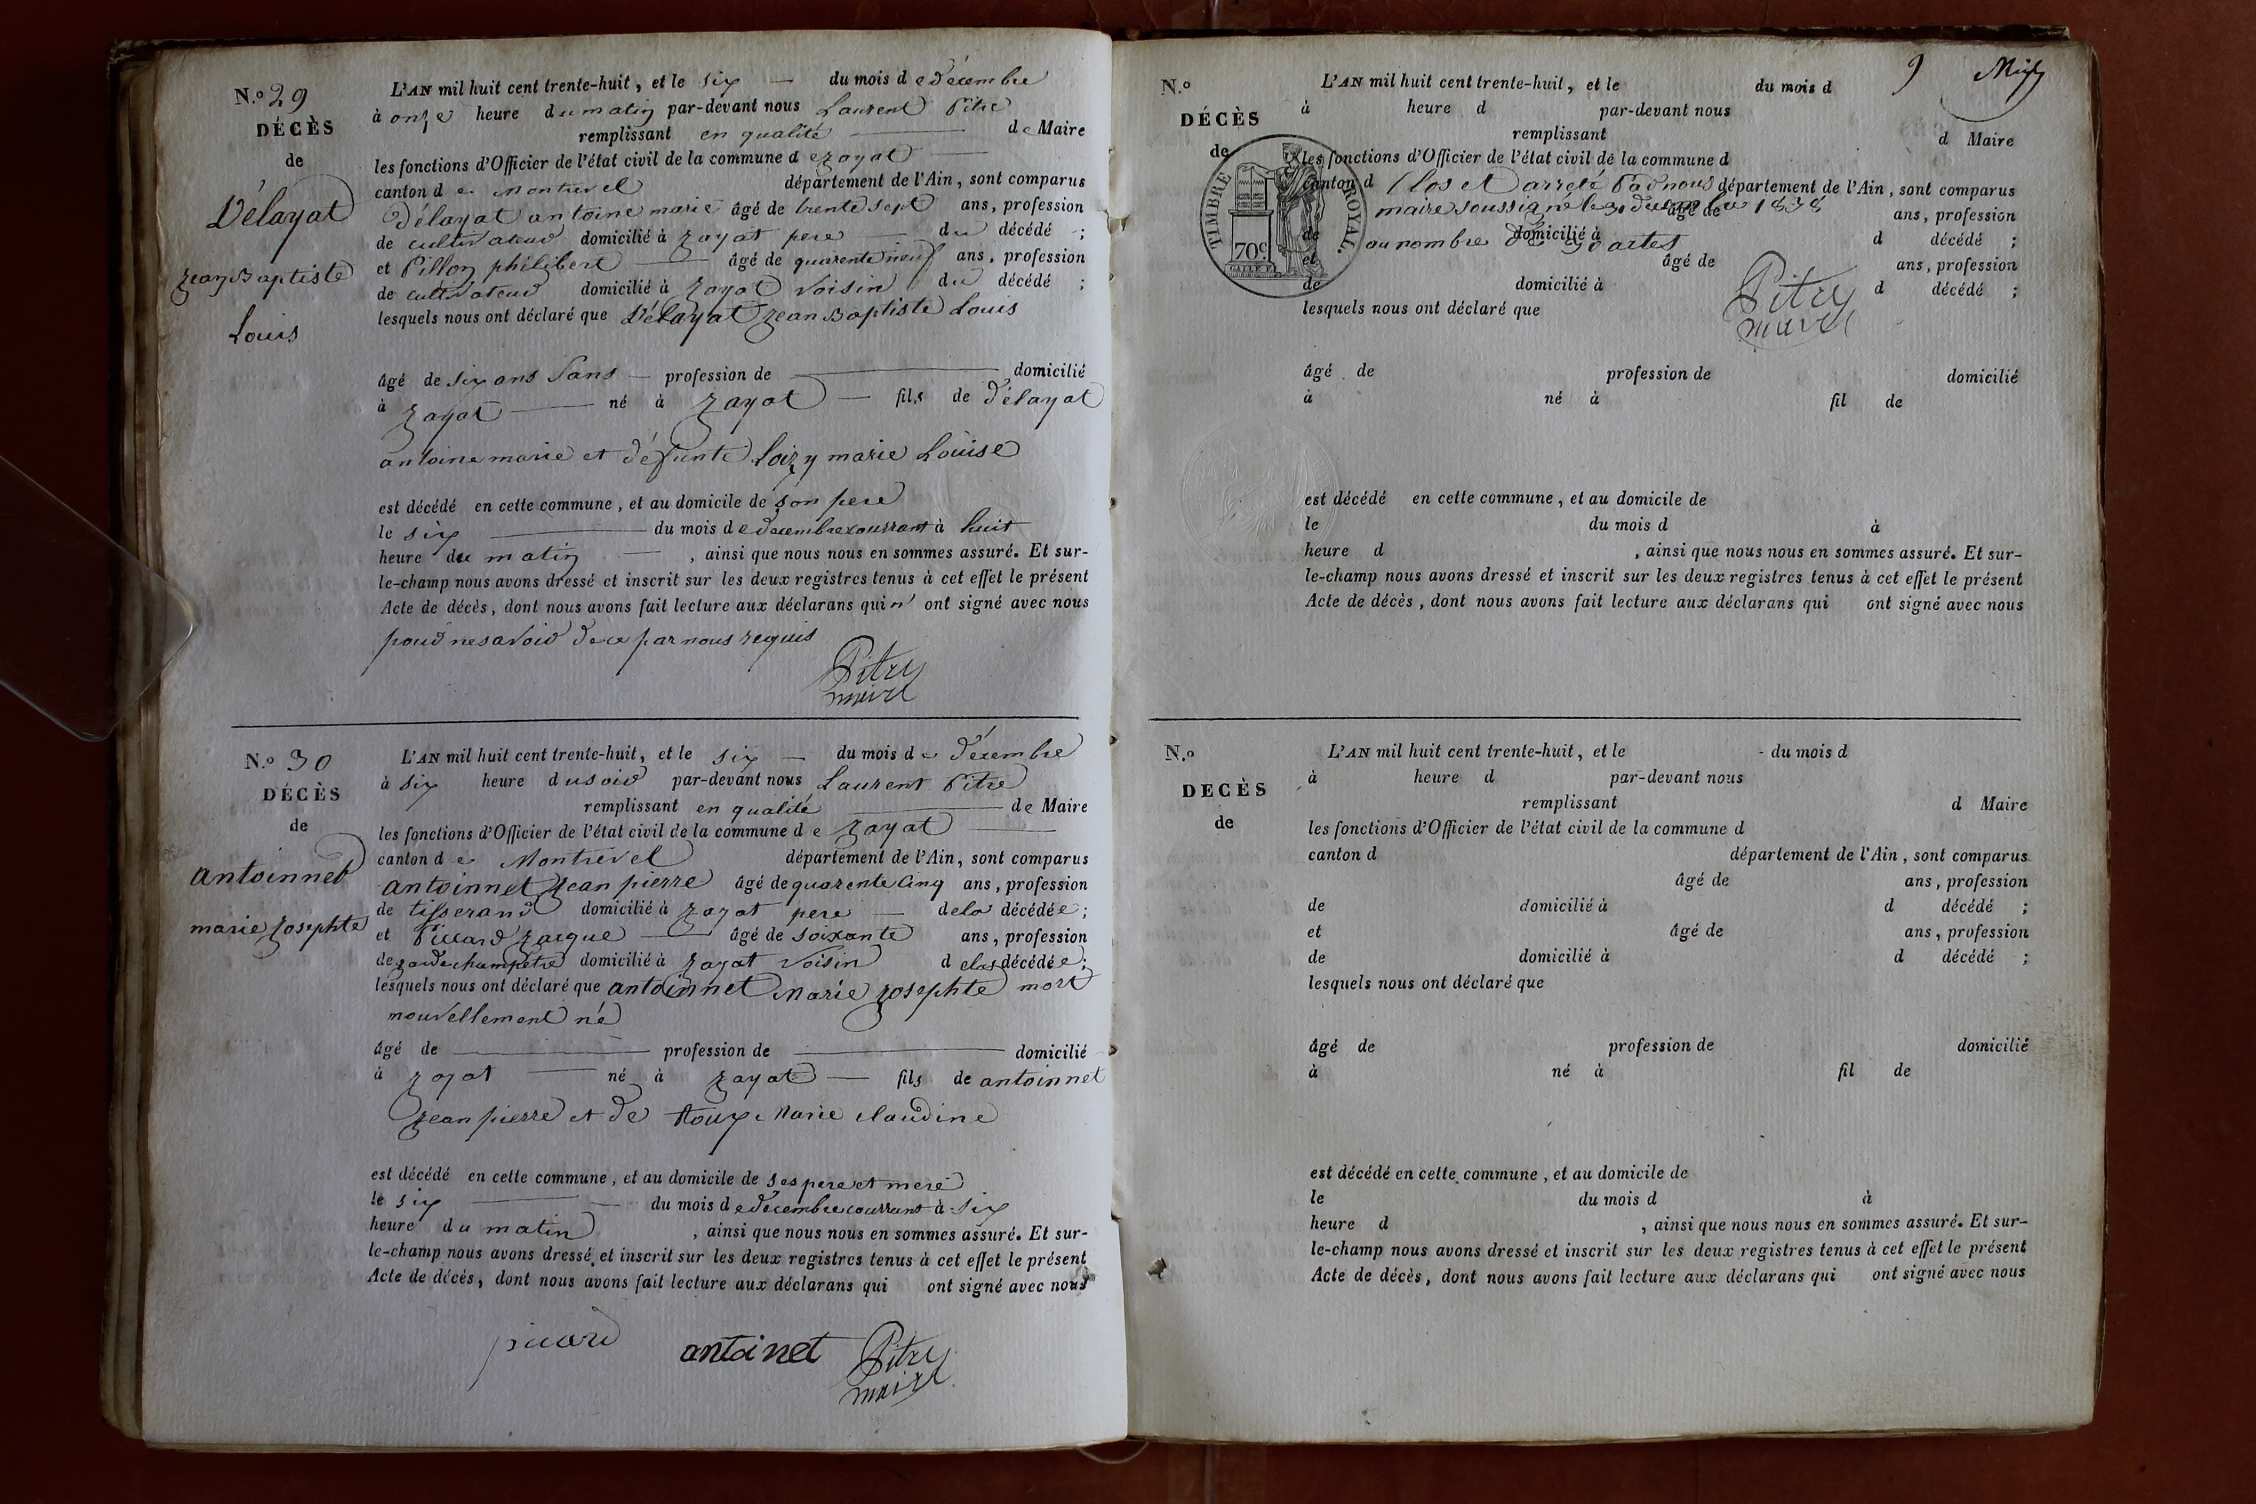 N.o 29
DÉCÈS
de
Délayat
Jean Baptiste
Louis
L'AN mil huit cent trente-huit, et le six du mois de décembre
à onze heure du matin par-devant nous Laurent Pitre
remplissant en qualité de Maire
les fonctions d'Officier de l'état civil de la commune de Jayat
canton de Montrevel département de l'Ain, sont comparus
Délayat antoine marie âgé de trente sept ans, profession
de cultivateur domicilié à Jayat pere du décédé ;
et Pillon philibert âgé de quarente neuf ans, profession
de cultivateur domicilié à Jayat Voisin du décédé ;
lesquels nous ont déclaré que Délayat Jean Baptiste Louis
âgé de six ans Sans profession de domicilié
à Jayat né à Jayat fils de Délayat
antoine marie et défunte Loizy marie Louise
est décédé en cette commune, et au domicile de son pere
le six du mois de decembre courrant à huit
heure du matin , ainsi que nous nous en sommes assuré. Et sur-
le-champ nous avons dressé et inscrit sur les deux registres tenus à cet effet le présent
Acte de décès, dont nous avons fait lecture aux déclarans qui n' ont signé avec nous
pour ne savoir de ce par nous requis
Pitre
maire
N.o 30
DÉCÈS
de
antoinnet
marie Josephte
L'AN mil huit cent trente-huit, et le six du mois de Décembre
à six heure du soir par-devant nous Laurent Pitre
remplissant en qualité de Maire
les fonctions d'Officier de l'état civil de la commune de Jayat
canton de Montrevel département de l'Ain, sont comparus
antoinnet Jean pierre âgé de quarente cinq ans, profession
de tisserand domicilié à Jayat pere de la décédée ;
et Piccard Jacque âgé de soixante ans, profession
de garde champetre domicilié à Jayat Voisin de la décédée ;
lesquels nous ont déclaré que antoinnet Marie Josephte mort
nouvellement né
âgé de profession de domicilié
à Jayat né à Jayat fils de antoinnet
Jean pierre et de Roux Marie claudine
est décédé en cette commune, et au domicile de ses pere et mere
le six du mois de décembre courrant à six
heure du matin , ainsi que nous nous en sommes assuré. Et sur-
le-champ nous avons dressé et inscrit sur les deux registres tenus à cet effet le présent
Acte de décès, dont nous avons fait lecture aux déclarans qui ont signé avec nous
picard antoinet Pitre
maire
9
N.o
DÉCÈS
de
TIMBRE ROYAL
70c
L'AN mil huit cent trente-huit, et le du mois d
à heure d par-devant nous
remplissant d Maire
les fonctions d'Officier de l'état civil de la commune d
canton d Clos et arreté Par nous département de l'Ain, sont comparus
maire soussigné le 31 decembre 1838 âgé de ans, profession
de au nombre de 30 actes domicilié à d décédé ;
et âgé de ans, profession
de domicilié à d décédé ;
lesquels nous ont déclaré que
Pitre
maire
âgé de profession de domicilié
à né à fil de
est décédé en cette commune, et au domicile de
le du mois d à
heure d , ainsi que nous nous en sommes assuré. Et sur-
le-champ nous avons dressé et inscrit sur les deux registres tenus à cet effet le présent
Acte de décès, dont nous avons fait lecture aux déclarans qui ont signé avec nous
N.o
DECÈS
de
L'AN mil huit cent trente-huit, et le du mois d
à heure d par-devant nous
remplissant d Maire
les fonctions d'Officier de l'état civil de la commune d
canton d département de l'Ain, sont comparus
âgé de ans, profession
de domicilié à d décédé ;
et âgé de ans, profession
de domicilié à d décédé ;
lesquels nous ont déclaré que
âgé de profession de domicilié
à né à fil de
est décédé en cette commune, et au domicile de
le du mois d à
heure d , ainsi que nous nous en sommes assuré. Et sur-
le-champ nous avons dressé et inscrit sur les deux registres tenus à cet effet le présent
Acte de décès, dont nous avons fait lecture aux déclarans qui ont signé avec nous